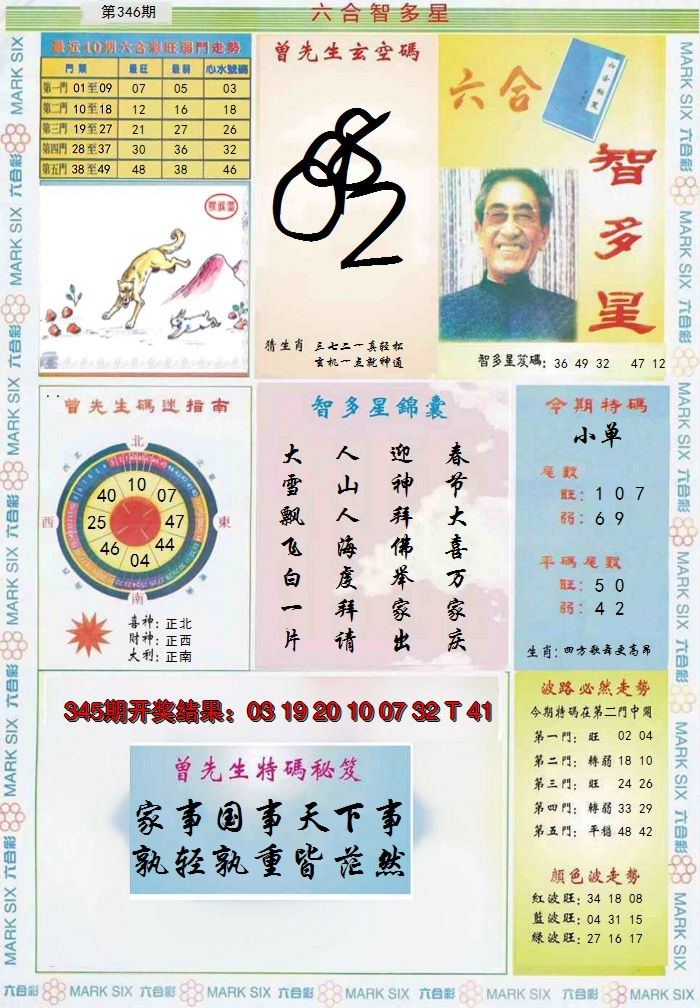 第346期
六合智多星
最近10期六合彩旺弱門走勢
門類 最旺 最弱 心水號碼
第一門 01至09 07 05 03
第二門 10至18 12 16 18
第三門 19至27 21 27 26
第四門 28至37 30 36 32
第五門 38至49 48 38 46
曾先生玄空碼
猜生肖 三七二一真轻松
玄机一点就神通
六合
智多星
智多星笈碼: 36 49 32 47 12
曾先生碼迷指南
北
西
東
南
10
07
47
44
04
46
25
40
喜神: 正北
財神: 正西
大利: 正南
智多星錦囊
春节大喜万家庆
迎神拜佛举家出
人山人海虔拜请
大雪飘飞白一片
今期特碼
小单
尾數
旺: 1 0 7
弱: 6 9
平碼尾數
旺: 5 0
弱: 4 2
生肖: 四方歌舞更高昂
345期开奖结果: 03 19 20 10 07 32 T 41
曾先生特碼秘笈
家事国事天下事
孰轻孰重皆茫然
波路必然走勢
今期特碼在第二門中開
第一門: 旺 02 04
第二門: 轉弱 18 10
第三門: 旺 24 26
第四門: 轉弱 33 29
第五門: 平穩 48 42
顔色波走勢
紅波旺: 34 18 08
藍波旺: 04 31 15
綠波旺: 27 16 17
六合彩 MARK SIX 六合彩 MARK SIX 六合彩 MARK SIX 六合彩 MARK SIX 六合彩 MARK SIX